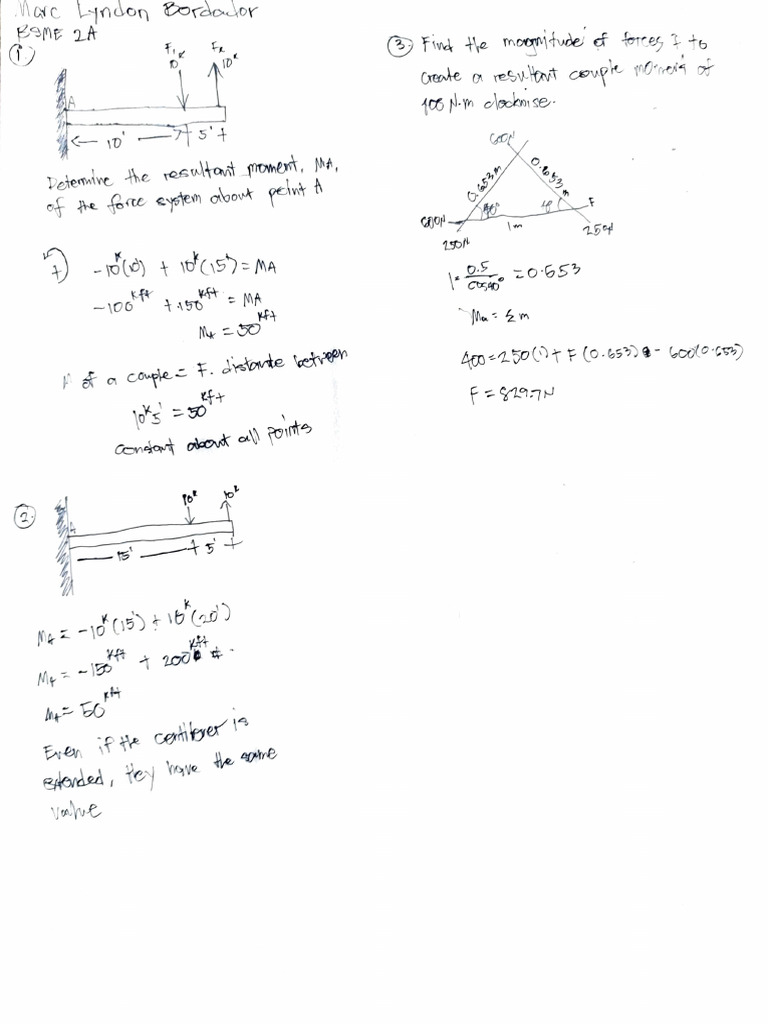 Marc Lyndon Bordador
BSME 2A
①
F₁
10ᵏ
10ᵏ
A
10'
5'
Determine the resultant moment, MA,
of the force system about point A
+
-10ᵏ(10') + 10ᵏ(15') = MA
-100ᵏᶠᵗ + 150ᵏᶠᵗ = MA
MA = 50ᵏᶠᵗ
of a couple = F. distante between
10ᵏ5' = 50ᵏᶠᵗ
constant about all points
②
10ᵏ
10ᵏ
A
15'
5'
MA = -10ᵏ(15') + 10ᵏ(20')
MA = -150ᵏᶠᵗ + 200ᵏᶠᵗ
MA = 50ᵏᶠᵗ
Even if the cantilever is
extended, they have the same
value
③ Find the magnitude of forces F to
create a resultant couple moment of
400 N.m clockwise.
600N
0.653m
0.653m
40°
40
F
600N
1m
250N
250N
l = 0.5/cos40° = 0.653
Ma = Σm
400 = 250(1) + F(0.653) - 600(0.653)
F = 829.7N